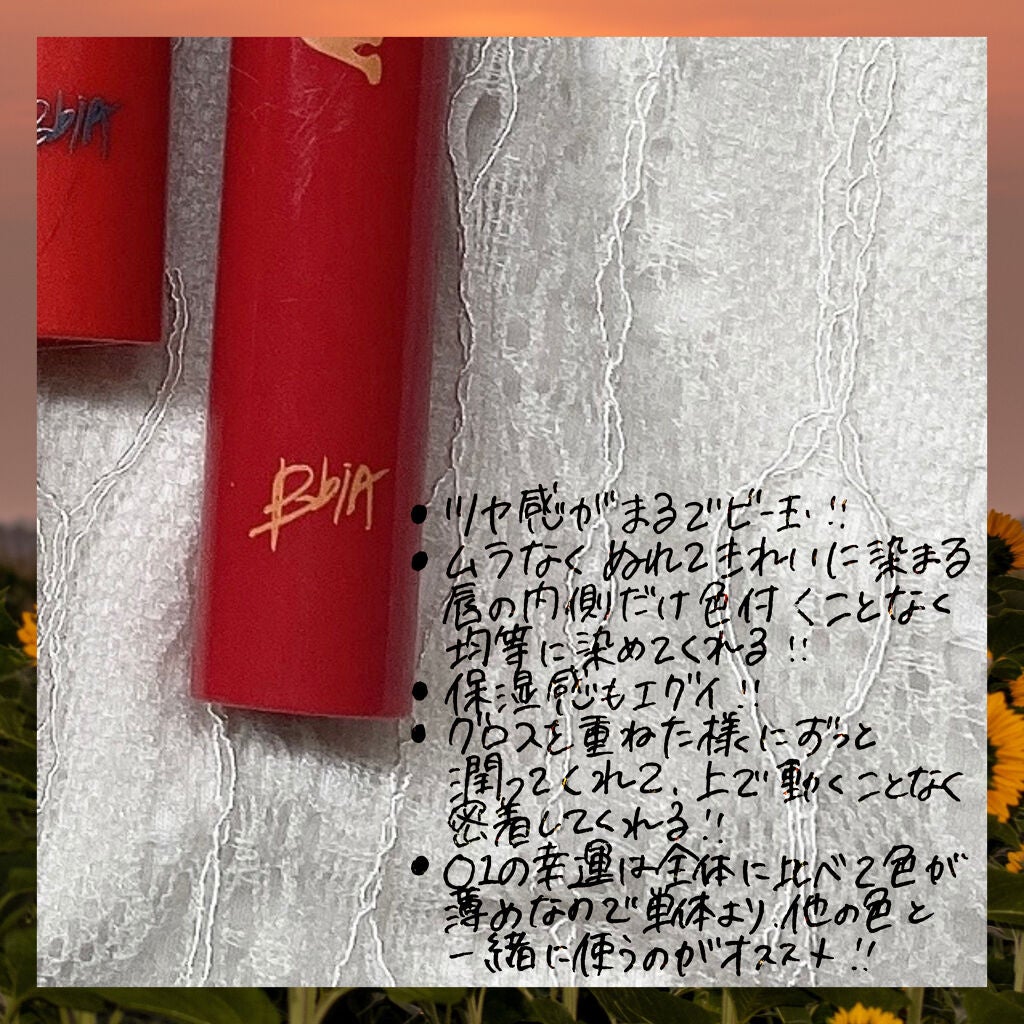 BbiA
BbiA
• ツヤ感がまるでビー玉!!
• ムラなくぬれてきれいに染まる
唇の内側だけ色付くことなく
均等に染めてくれる!!
• 保湿感もエグイ!!
• グロスを重ねた様にずっと
潤ってくれて、上で動くことなく
密着してくれる!!
• 01の幸運は全体に比べて色が
薄めなので単体より、他の色と
一緒に使うのがオススメ!!